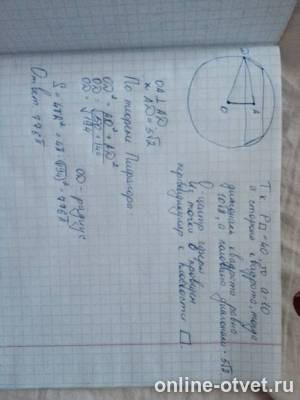 Т.к. P□ = 40, то a = 10
a - сторона квадрата, тогда
диагональ квадрата равна
10√2, а половина диагонали - 5√2
O центр сферы
из точки O проведен
перпендикуляр к плоскости □.
OA ⊥ AD
AD = 5√2
По теореме Пифагора
OD² = AO² + AD²
OD =
OD = √194
OD - радиус
S = 4πR² = 4π · (√194)² =
Ответ:
online-otvet.ru